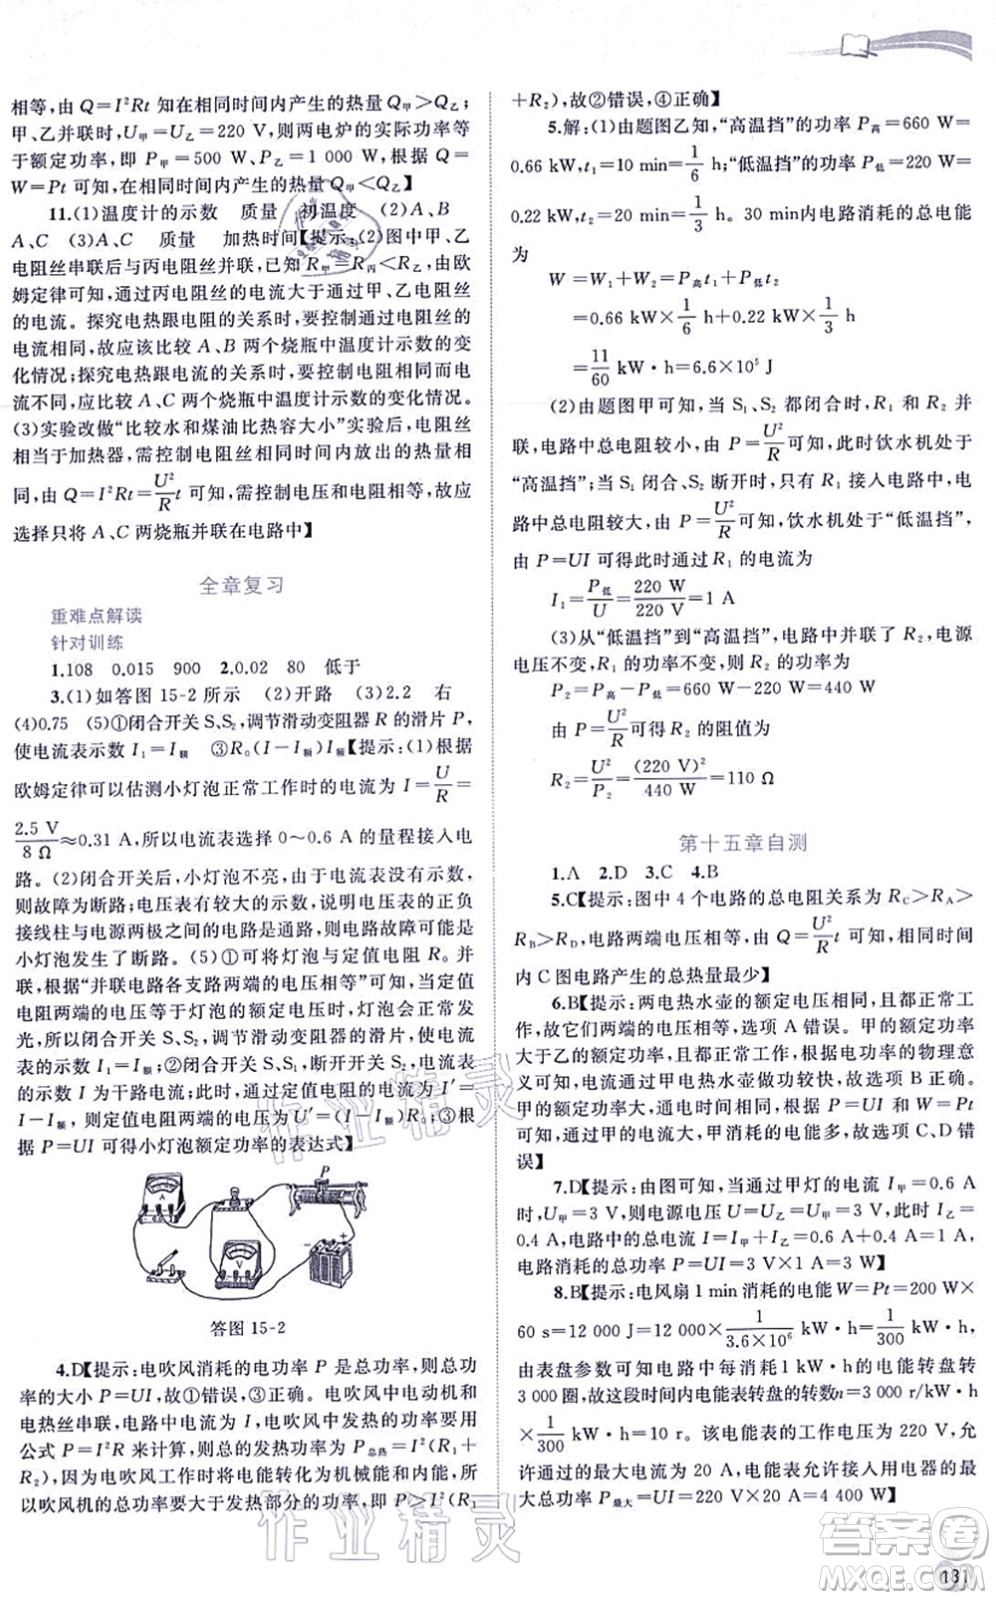 相等,由 Q=I²Rt 知在相同时间内产生的热量 Q甲>Q乙;
甲、乙并联时,U甲=U乙=220 V,则两电炉的实际功率等
于额定功率,即 P甲=500 W、P乙=1 000 W,根据 Q=
W=Pt 可知,在相同时间内产生的热量 Q甲<Q乙】
11.(1)温度计的示数 质量 初温度 (2)A、B
A、C (3)A、C 质量 加热时间【提示:(2)图中甲、乙
电阻丝串联后与丙电阻丝并联,已知 R甲=R丙<R乙,由欧
姆定律可知,通过丙电阻丝的电流大于通过甲、乙电阻丝
的电流。探究电热跟电阻的关系时,要控制通过电阻丝的
电流相同,故应该比较 A、B 两个烧瓶中温度计示数的变
化情况;探究电热跟电流的关系时,要控制电阻相同而电
流不同,应比较 A、C 两个烧瓶中温度计示数的变化情况。
(3)实验改做“比较水和煤油比热容大小”实验时,电阻丝
相当于加热器,需控制电阻丝相同时间内放出的热量相
同,由 Q=I²Rt=U²/R t 可知,需控制电压和电阻相等,故应
选择只将 A、C 两烧瓶并联在电路中】
全章复习
重难点解读
针对训练
1.108 0.015 900 2.0.02 80 低于
3.(1)如答图 15-2 所示 (2)开路 (3)2.2 右
(4)0.75 (5)①闭合开关 S、S₂,调节滑动变阻器 R 的滑片 P,
使电流表示数 I₁=I额 ③R₀(I-I额)I额【提示:(1)根据
欧姆定律可以估测小灯泡正常工作时的电流为 I=U/R=
2.5 V/8 Ω≈0.31 A,所以电流表选择 0~0.6 A 的量程接入电
路。(2)闭合开关后,小灯泡不亮,电流表几乎无示数,
则故障为断路;电压表有较大的示数,说明电压表的正负
接线柱与电源两极之间的电路是通路,则电路故障可能是
小灯泡发生了断路。(5)①灯泡与定值电阻 R₀ 并
联,根据“并联电路各支路两端的电压相等”可知,当定值
电阻两端的电压等于灯泡的额定电压时,灯泡正常发
光,所以闭合开关 S、S₂,调节滑动变阻器的滑片,使电流
表的示数为 I额;②闭合开关 S、S₁,断开开关 S₂,电流表
的示数 I 为干路电流;则通过定值电阻的电流为 I′=
I-I额,则定值电阻两端的电压为 U′=(I-I额)R₀;③根
据 P=UI 可得小灯泡额定功率的表达式】
A
V
P
+
-
答图 15-2
4.D【提示:电吹风消耗的电功率 P 是总功率,则总功
率的大小 P=UI,故①错误,③正确。电吹风中电动机和
电热丝串联,电路中电流为 I,电吹风中发热的功率要用
公式 P=I²R 来计算,则总的发热功率为 P总热=I²(R₁+
R₂),因为电吹风工作时将电能转化为机械能和内能,所
以吹风机的总功率要大于发热部分的功率,即 P>I²(R₁
+R₂),故②错误,④正确】
5.解:(1)由题图乙知,“高温挡”的功率 P高=660 W=
0.66 kW,t₁=10 min=1/6 h;“低温挡”的功率 P低=220 W=
0.22 kW,t₂=20 min=1/3 h。30 min内电路消耗的总电能
为
W=W₁+W₂=P高t₁+P低t₂
=0.66 kW×1/6 h+0.22 kW×1/3 h
=11/60 kW·h=6.6×10⁵ J
(2)由题图甲可知,当 S₁、S₂ 都闭合时,R₁ 和 R₂ 并
联,电路中总电阻较小,由 P=U²/R 可知,此时饮水机处于
“高温挡”;当 S₁ 闭合、S₂ 断开时,只有 R₁ 接入电路中,电
路中总电阻较大,由 P=U²/R可知,饮水机处于“低温挡”,
由 P=UI 可得此时通过 R₁ 的电流为
I₁=P低/U=220 W/220 V=1 A
(3)从“低温挡”到“高温挡”,电路中并联了 R₂,电源
电压不变,R₁ 的功率不变,则 R₂ 的功率为
P₂=P高-P低=660 W-220 W=440 W
由 P=U²/R可得 R₂ 的阻值为
R₂=U²/P₂=(220 V)²/440 W=110 Ω
第十五章自测
1.A 2.D 3.C 4.B
5.C【提示:图中 4 个电路的总电阻关系为 RC>RA>
RB>RD,电路两端电压相等,由 Q=U²/R t可知,相同时间
内 C 图电路产生的总热量最少】
6.B【提示:两电热水壶的额定电压相同,且都正常工
作,故它们两端的电压相等,选项 A 错误。甲的额定功率
大于乙的额定功率,且都正常工作,由功率的物理意
义可知,相同时间,甲电热水壶做功较快,故选项 B 正确。
甲的额定功率大,相同时间,根据 P=UI 和 W=Pt
可知,甲的电流大,甲消耗的电能多,故选项 C、D 错
误】
7.D【提示:由图可知,当通过甲灯的电流 I甲=0.6 A
时,U甲=3 V,则电源电压 U=U乙=U甲=3 V,此时 I乙=
0.4 A,电路中的总电流 I=I甲+I乙=0.6 A+0.4 A=1 A,
电路消耗的总功率 P=UI=3 V×1 A=3 W】
8.B【提示:电风扇 1 min 消耗的电能 W=Pt=200 W×
60 s=12 000 J=12 000×1/3.6×10⁶ kW·h=1/300 kW·h,
由表盘参数可知电路中每消耗 1 kW·h 的电能转盘转
3 000 圈,故这段时间内电能表转盘的转数n=3 000 r/kW·h
×1/300 kW·h=10 r。该电能表的工作电压为 220 V,允
许通过的最大电流为 20 A,电能表允许接入用电器的最
大总功率 P最大=UI=220 V×20 A=4 400 W】
作业精灵
作业精灵
答案卷
MXQE.COM
181